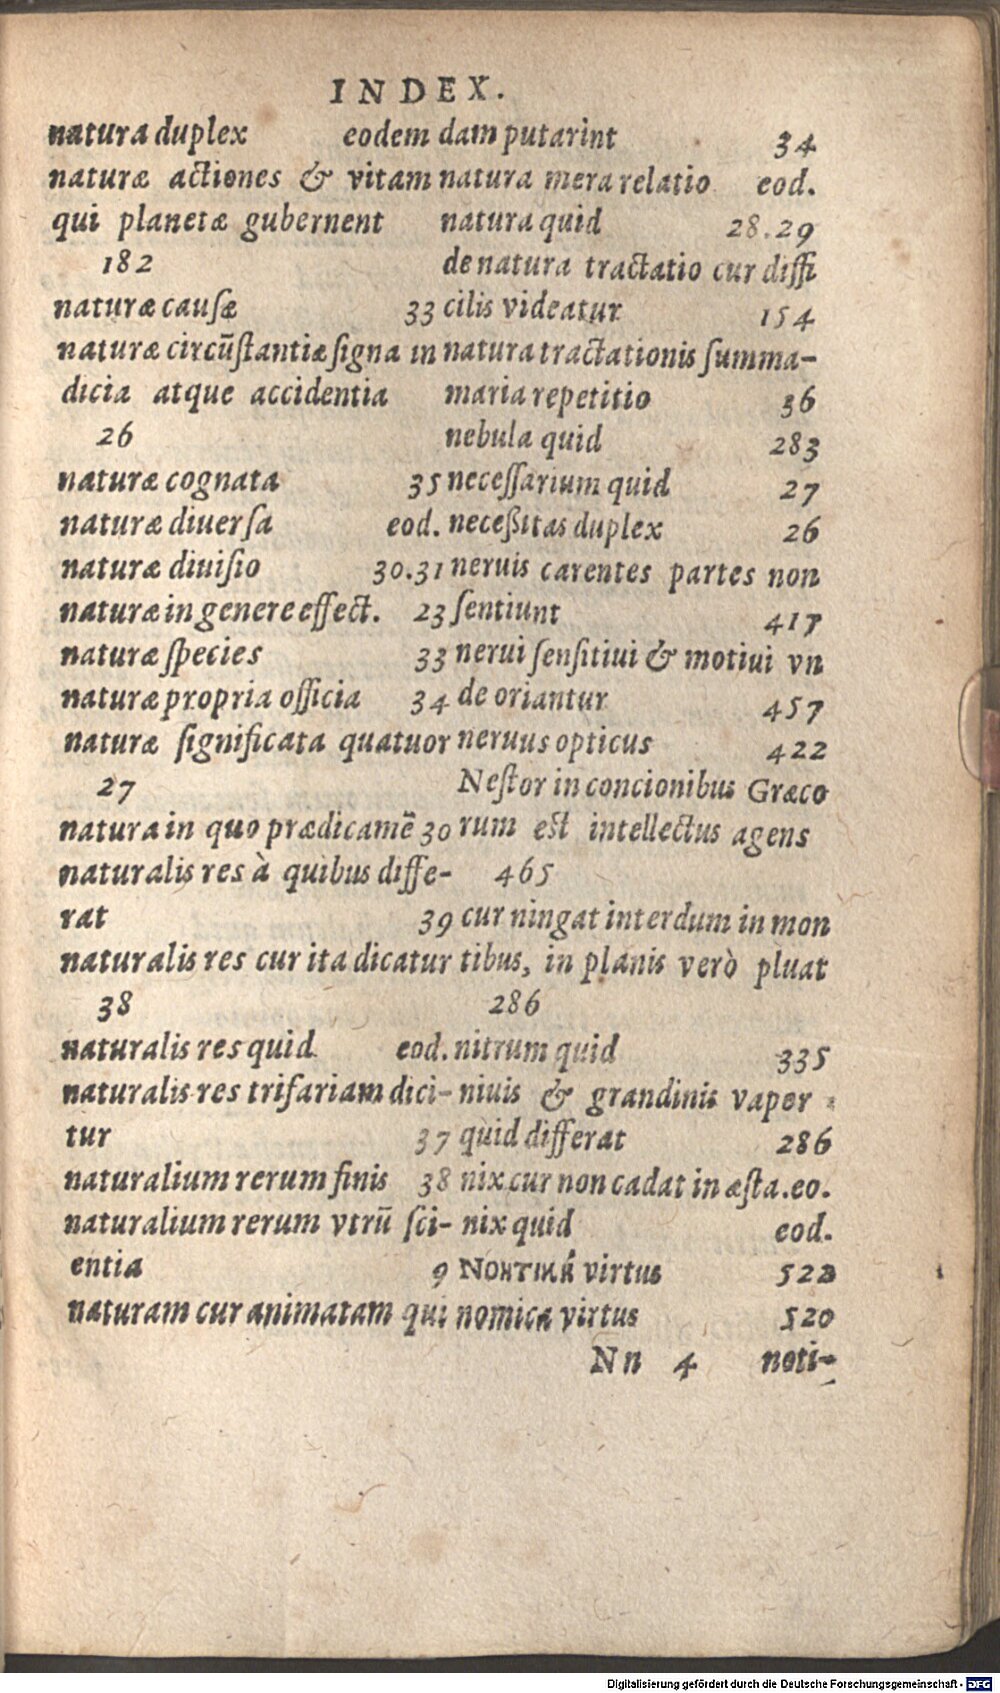 INDEX.
natura duplex eodem
naturæ actiones & vitam
qui planetæ gubernent
182
naturæ causæ 33
naturæ circūſtantiæ ſigna in
dicia atque accidentia
26
naturæ cognata 35
naturæ diuerſa eod.
naturæ diuiſio 30.31
naturæ in genere effect. 23
naturæ ſpecies 33
naturæ propria officia 34
naturæ ſignificata quatuor
27
natura in quo prædicamē 30
naturalis res à quibus diffe-
rat 39
naturalis res cur ita dicatur
38
naturalis res quid eod.
naturalis res trifariam dici-
tur 37
naturalium rerum finis 38
naturalium rerum vtrū ſci-
entia 9
naturam cur animatam qui
dam putarint 34
natura mera relatio eod.
natura quid 28.29
de natura tractatio cur diffi
cilis videatur 154
natura tractationis ſumma-
maria repetitio 36
nebula quid 283
neceſſarium quid 27
neceßitas duplex 26
neruis carentes partes non
ſentiunt 417
nerui ſenſitiui & motiui vn
de oriantur 457
neruus opticus 422
Neſtor in concionibus Græco
rum est intellectus agens
465
cur ningat interdum in mon
tibus, in planis verò pluat
286
nitrum quid 335
niuis & grandinis vapor
quid differat 286
nix cur non cadat in æſta. eo.
nix quid eod.
virtus 522
nomica virtus 520
Nn 4 noti-
Digitalisierung gefördert durch die Deutsche Forschungsgemeinschaft - DFG